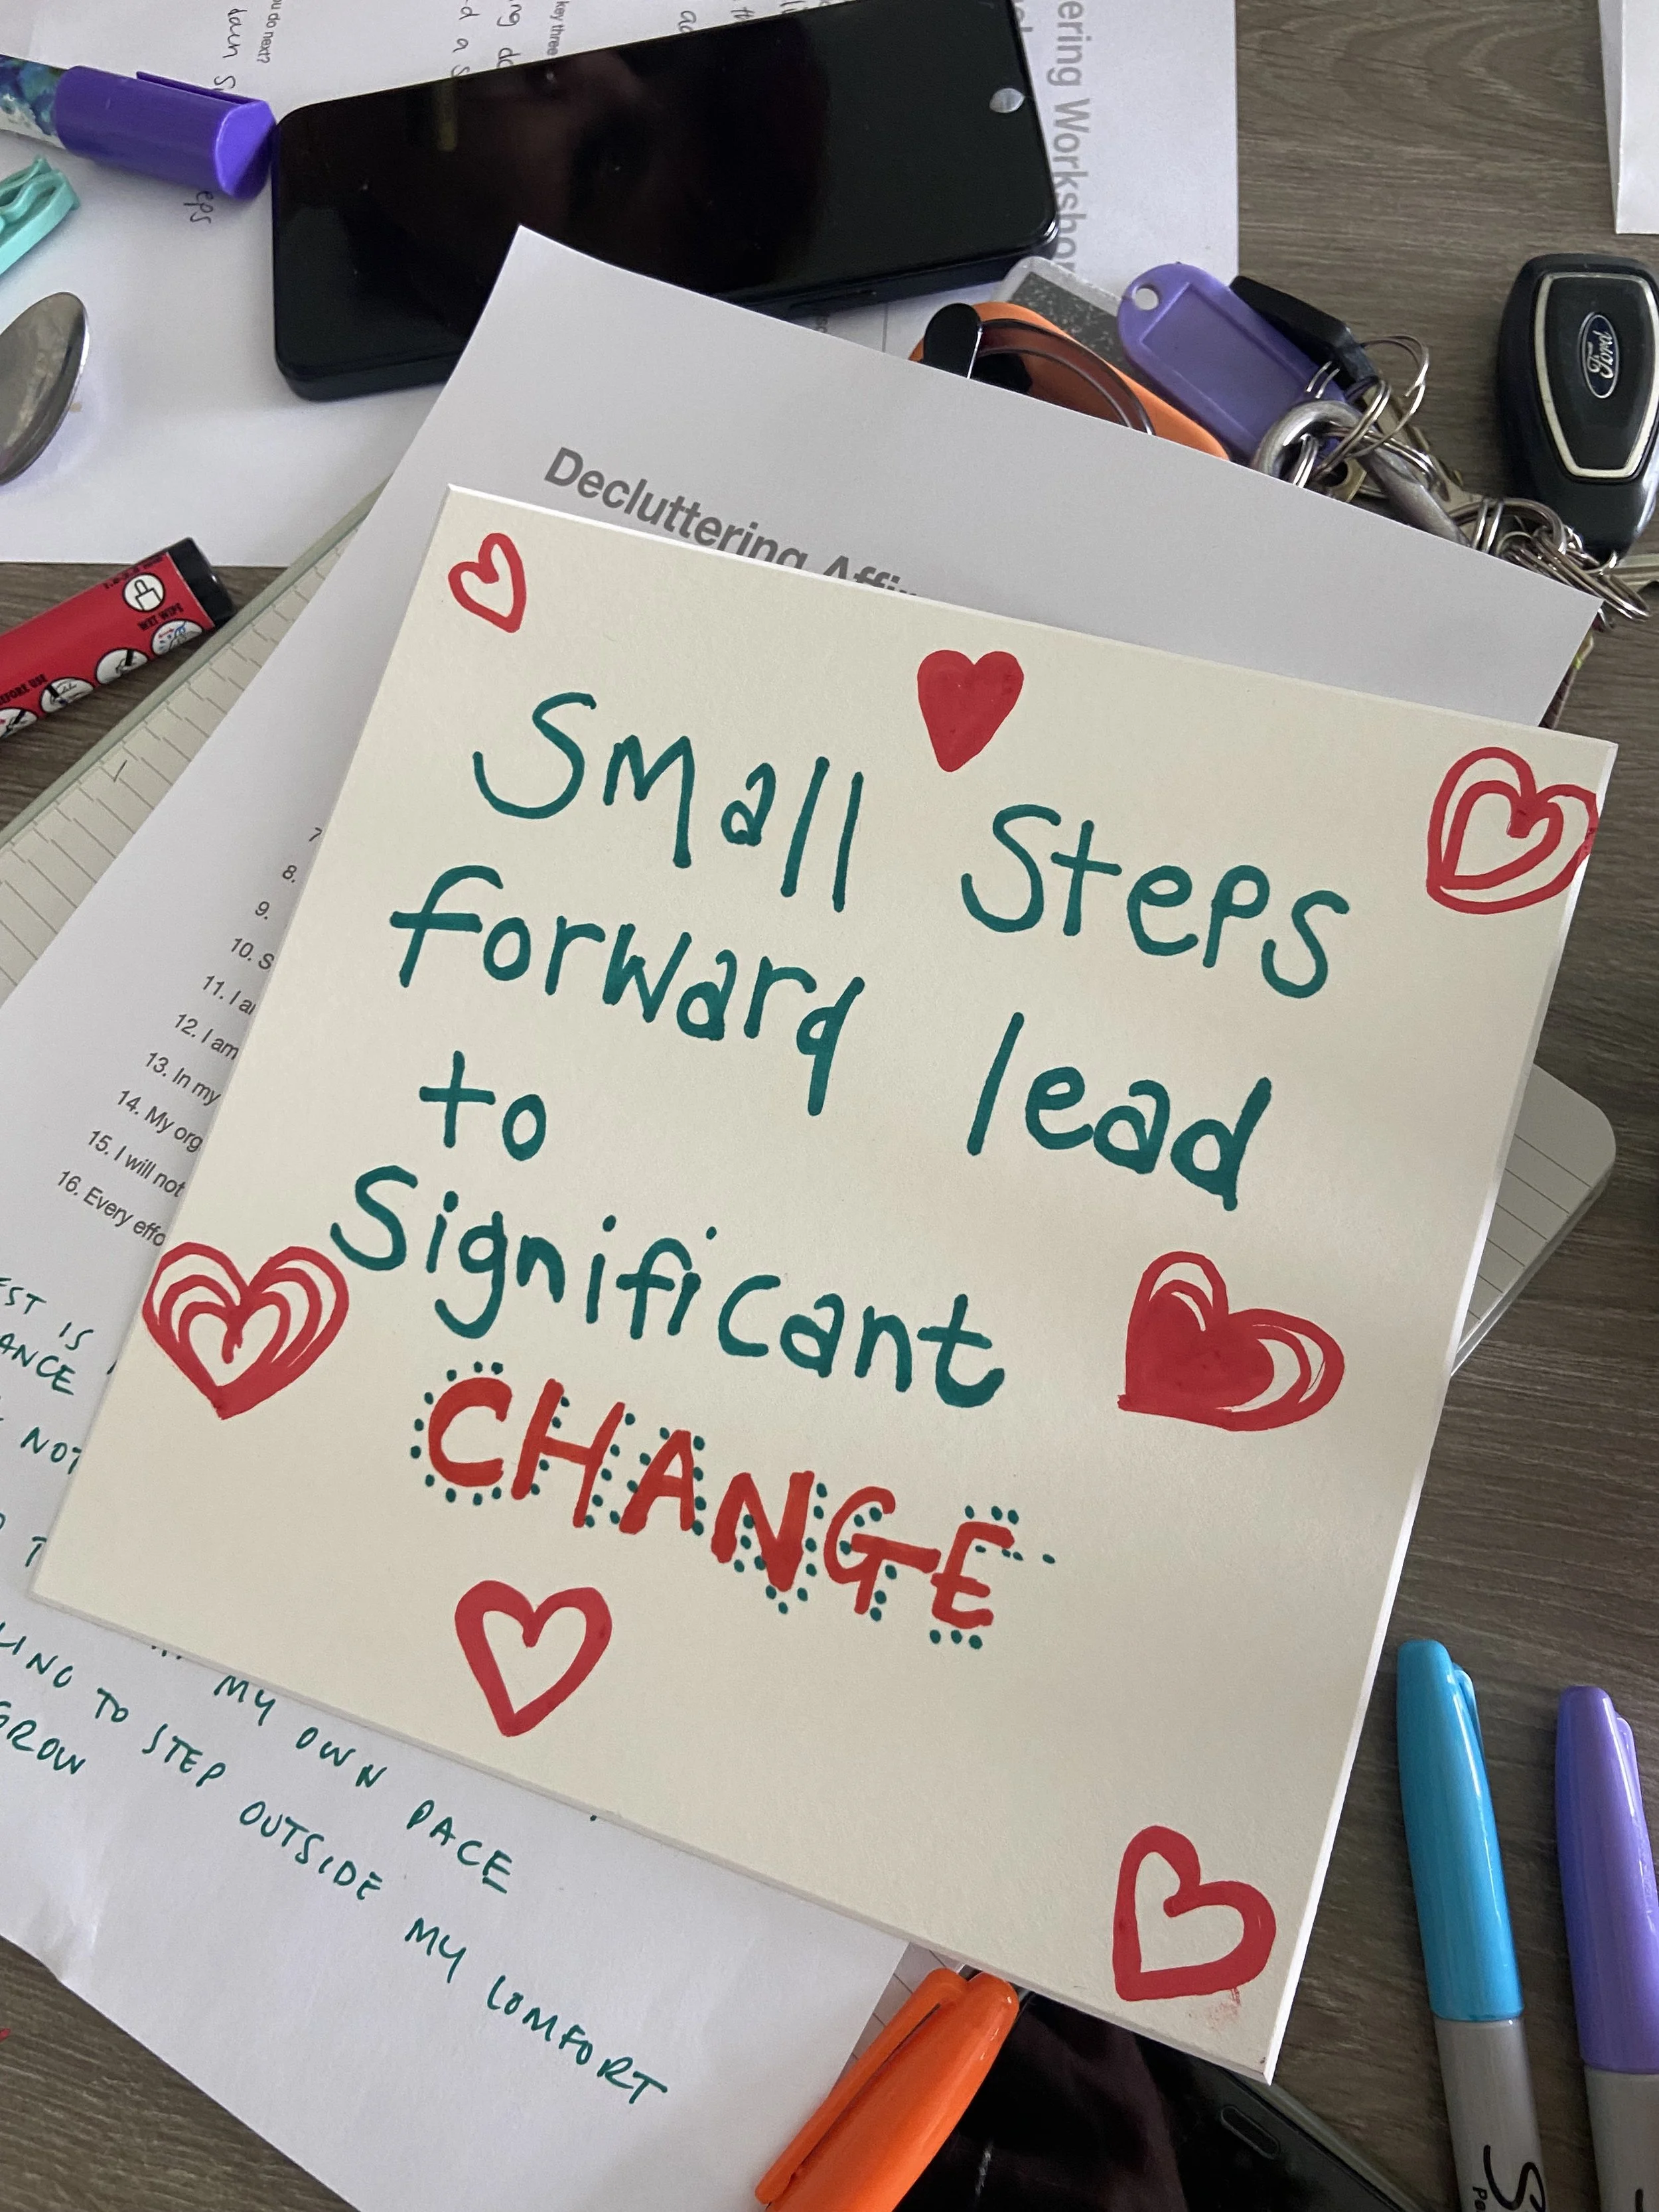 Small Steps
forward lead
to
Significant
CHANGE
Decluttering
ering Workshop
Ford
u do next?
key three
WET WIPE
EFORE USE
7
8.
9.
10. S
11. I ar
12. I am
13. In my
14. My org
15. I will not
16. Every effo
EST IS
ANCE
NOT
MY OWN PACE
LING TO STEP OUTSIDE MY COMFORT
GROW